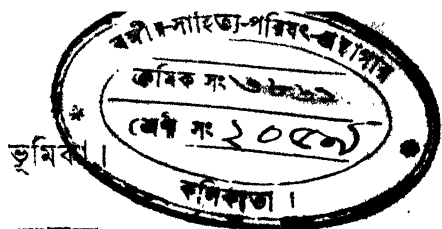 বঙ্গীয়-সাহিত্য-পরিষৎ-গ্রন্থাগার
ক্রমিক সং
শ্রেণী সং ২০৫৯
ভূমিকা।
কলিকাতা।